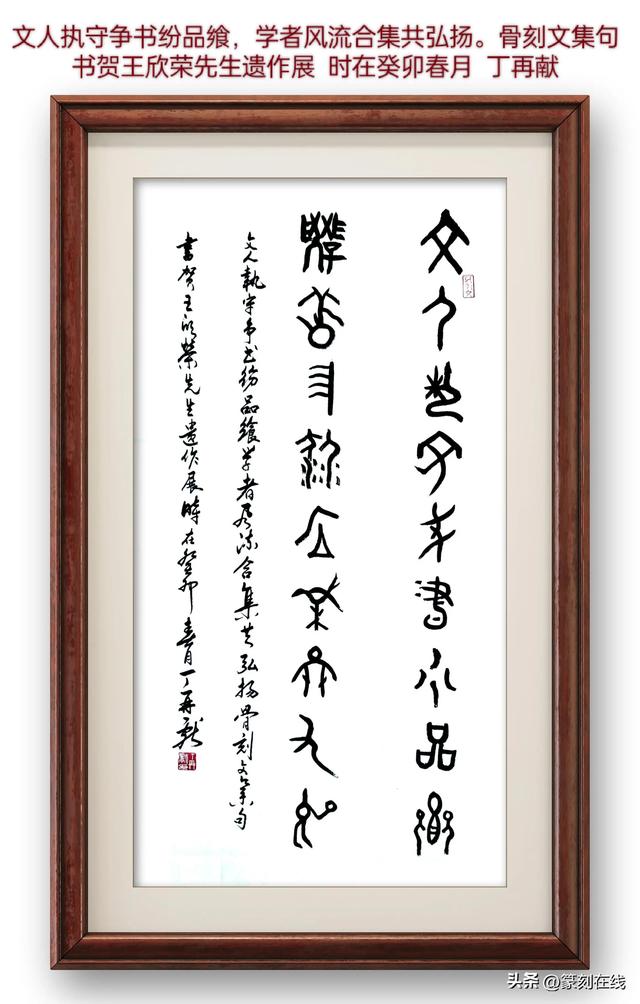 文人执守争书纷品飨，学者风流合集共弘扬。骨刻文集句
书贺王欣荣先生遗作展 时在癸卯春月 丁再献
文人執守争書纷品飨
學者风流合集共弘扬
文人執守争书纷品飨学者风流合集共弘扬骨刻文集句
書贺王欣荣先生遗作展時在癸卯春月丁再献
头条 @篆刻在线